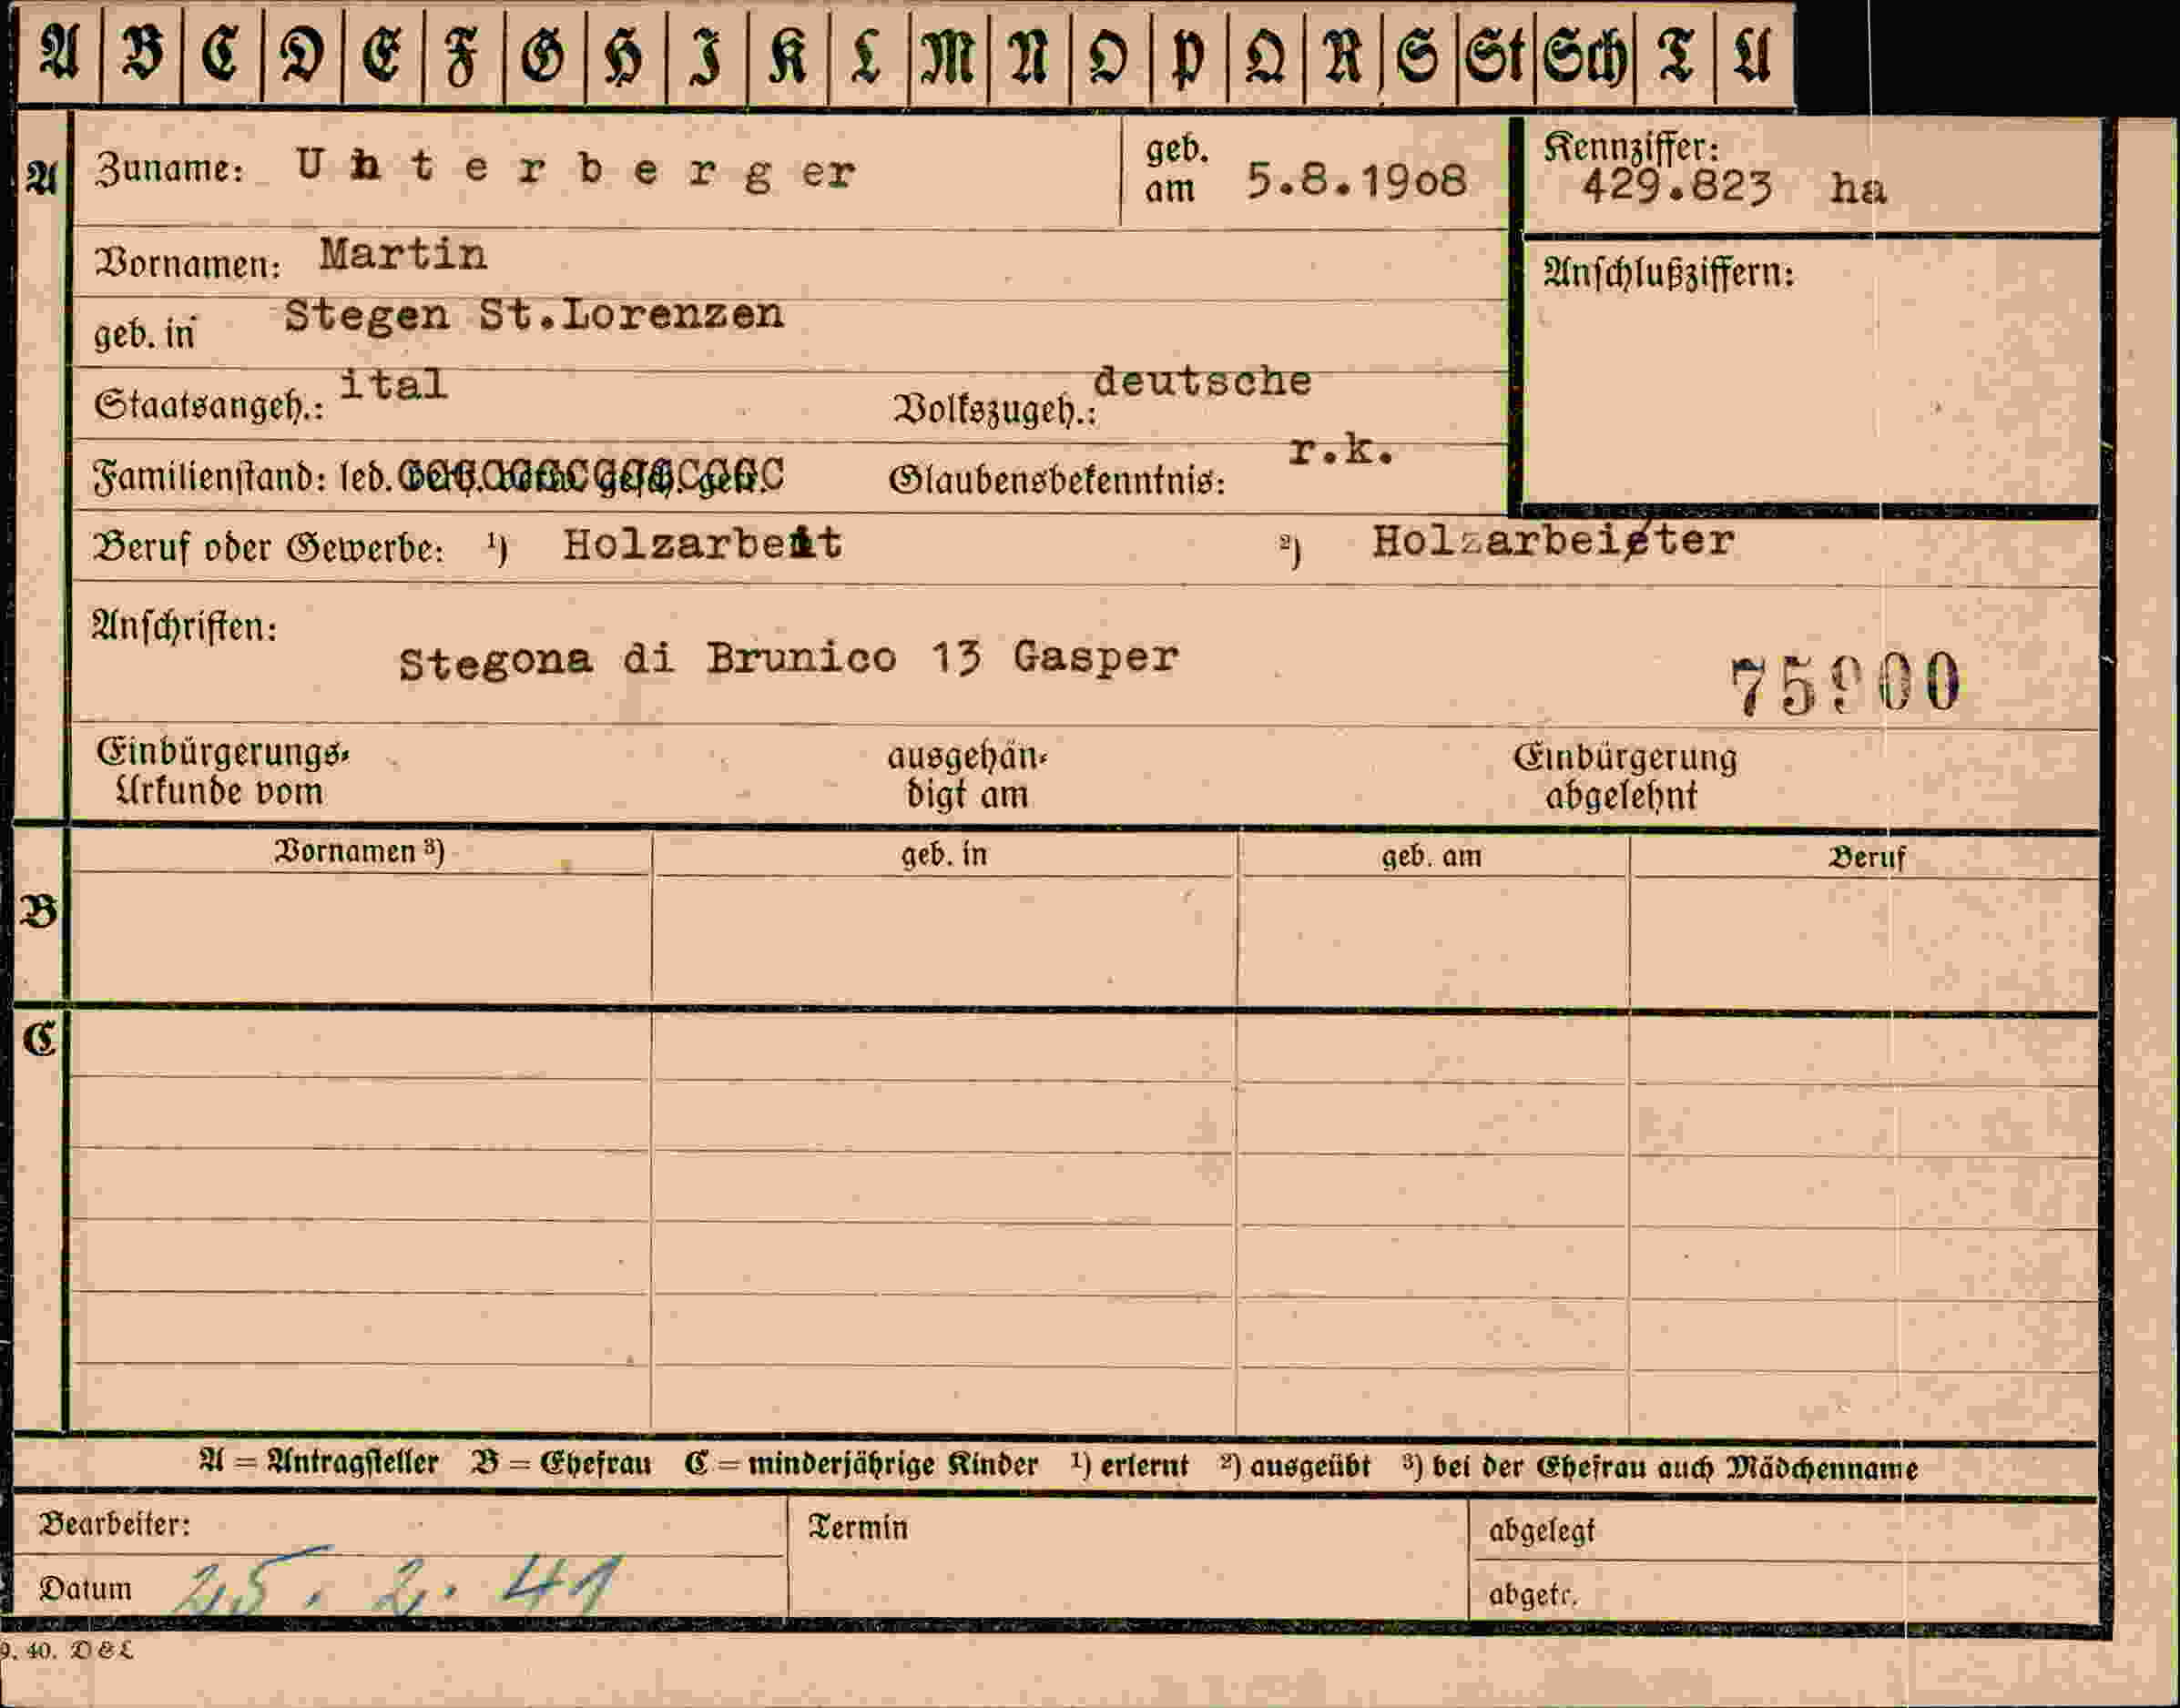 A B C D E F G H I K L M N O P Q R S St Sch T U
A Zuname: U n t e r b e r g er geb. am 5.8.19o8 Kennziffer: 429.823 ha
Vornamen: Martin Anschlußziffern:
geb. in Stegen St.Lorenzen
Staatsangeh.: ital Volkszugeh.: deutsche
Familienstand: led. Glaubensbekenntnis: r.k.
Beruf oder Gewerbe: ¹) Holzarbeit ²) Holzarbeiter
Anschriften:
Stegona di Brunico 13 Gasper
Einbürgerungs- ausgehän- Einbürgerung
Urkunde vom digt am abgelehnt
Vornamen ³) geb. in geb. am Beruf
B
C
A = Antragsteller B = Ehefrau C = minderjährige Kinder ¹) erlernt ²) ausgeübt ³) bei der Ehefrau auch Mädchenname
Bearbeiter: Termin abgelegt
Datum 25. 2. 41 abgetr.
9. 40. D & L